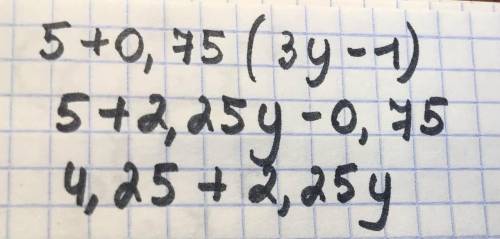 5+0,75(3y-1)
5+2,25y-0,75
4,25+2,25y